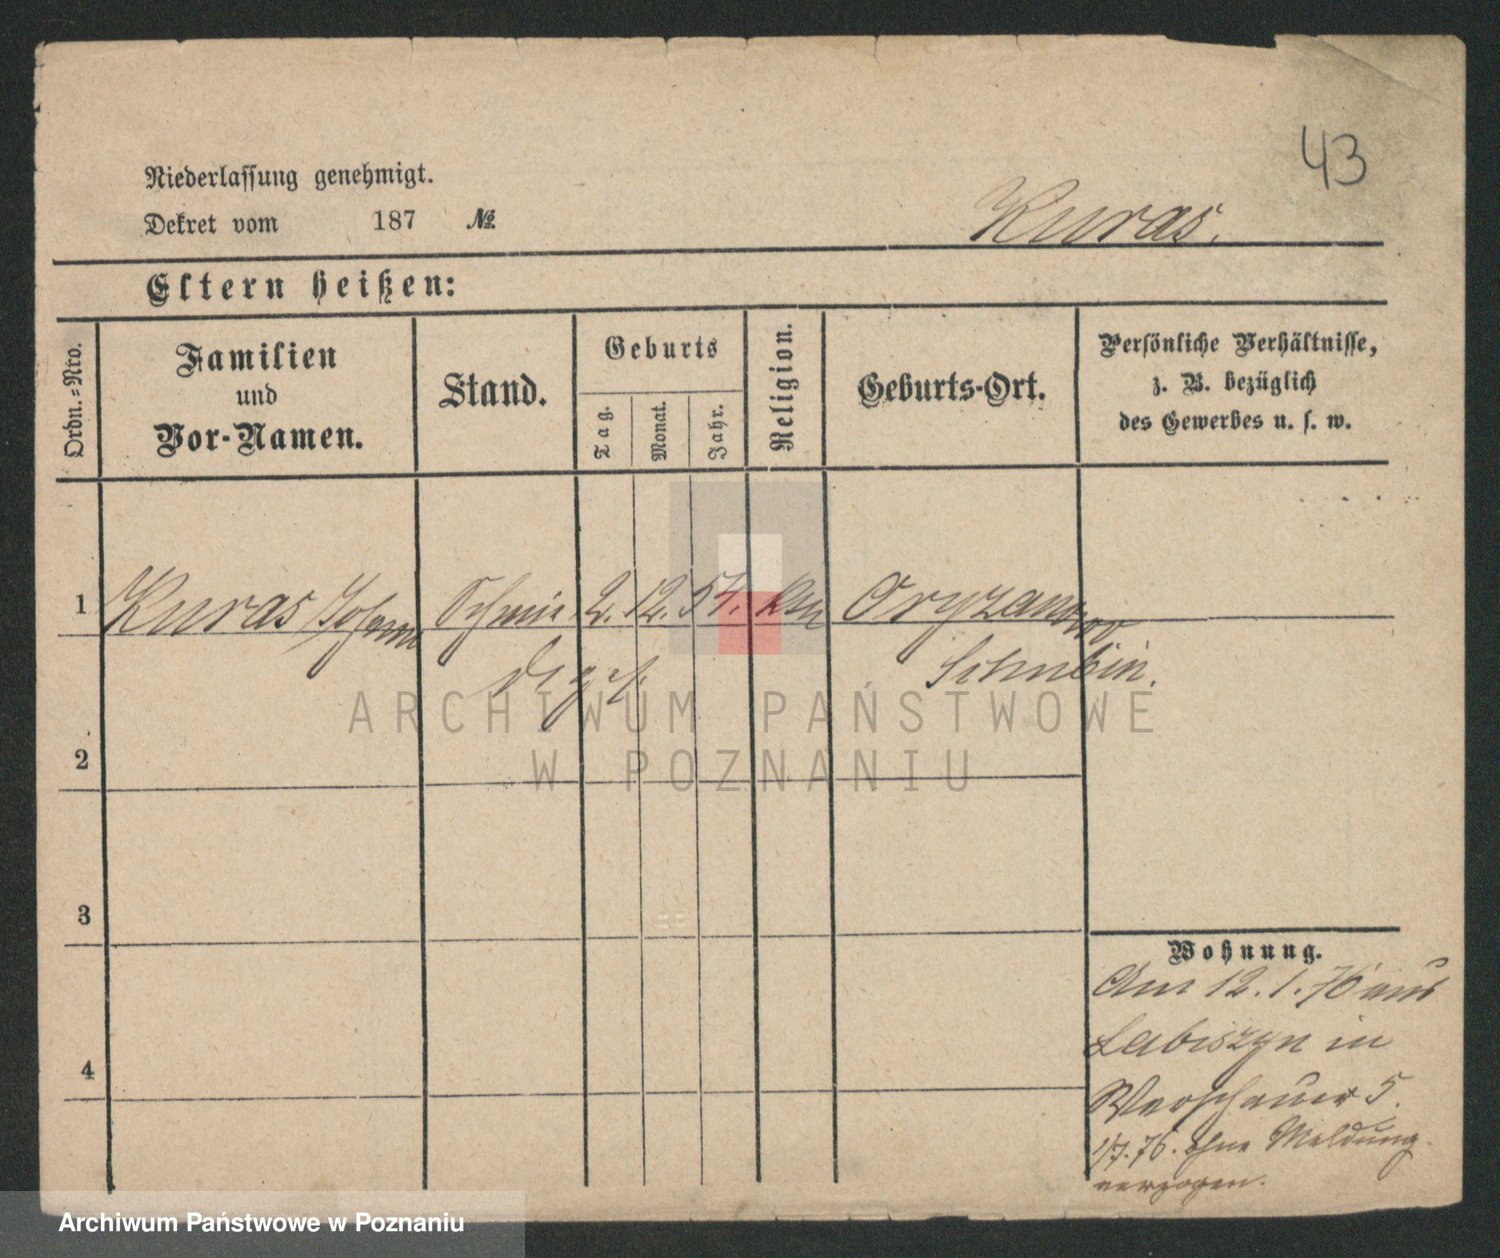 43
Niederlassung genehmigt.
Dekret vom 187 №
Kuras.
Eltern heißen:
Ordn.-Nro.
Familien
und
Vor-Namen.
Stand.
Geburts
Tag.
Monat.
Jahr.
Religion.
Geburts-Ort.
Persönliche Verhältnisse,
z. B. bezüglich
des Gewerbes u. s. w.
1 Kuras Johann 2. 12. 54. Oryzanowo
Schubin.
2
3
4
Wohnung.
Am 12.1.76 aus
Labiszyn in
Warschauer 5.
1/7.76. ohne Meldung
verzogen.
ARCHIWUM PAŃSTWOWE
W POZNANIU
Archiwum Państwowe w Poznaniu